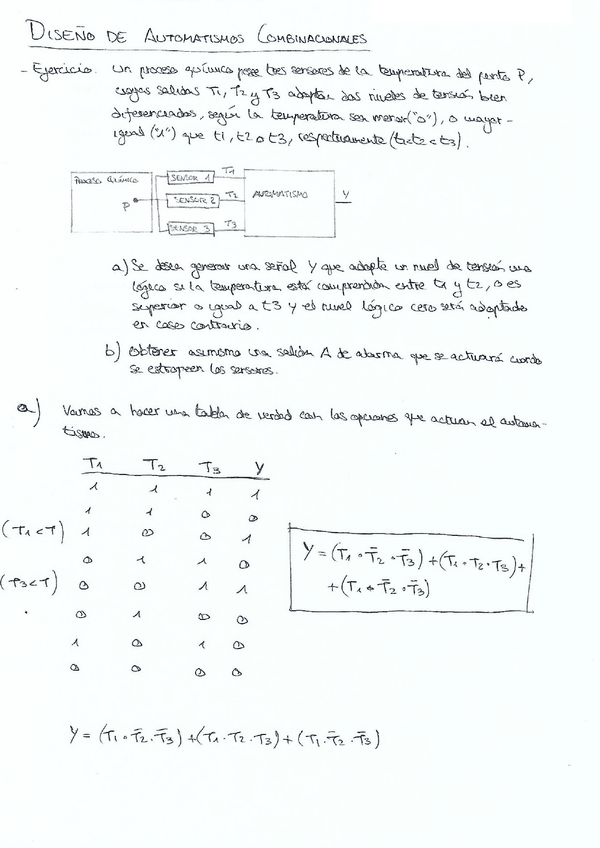 DISEÑO DE AUTOMATISMOS COMBINACIONALES
- Ejercicio. Un proceso químico posee tres sensores de la temperatura del punto P,
cuyas salidas T1, T2 y T3 adoptan dos niveles de tensión bien
diferenciados, según la temperatura sea menor ("0"), o mayor-
igual ("1") que t1, t2 o t3, respectivamente (t1<t2<t3).
PROCESO QUÍMICO
P
SENSOR 1
T1
SENSOR 2
T2
SENSOR 3
T3
AUTOMATISMO
Y
a) Se desea generar una señal Y que adopte un nivel de tensión uno
lógico si la temperatura está comprendida entre t1 y t2, o es
superior o igual a t3 y el nivel lógico cero será adoptado
en caso contrario.
b) Obtener asimismo una salida A de alarma que se activará cuando
se estropeen los sensores.
a) Vamos a hacer una tabla de verdad con las opciones que actuan el automa-
tismo.
T1 T2 T3 Y
1 1 1 1
1 1 0 0
(T1<T) 1 0 0 1
0 1 1 0
(T3<T) 0 0 1 1
0 1 0 0
1 0 1 0
0 0 0 0
Y = (T1 · T̄2 · T̄3) + (T1 · T2 · T3) +
+ (T1 · T̄2 · T̄3)
Y = (T1 · T̄2 · T̄3) + (T1 · T2 · T3) + (T1 · T̄2 · T̄3)